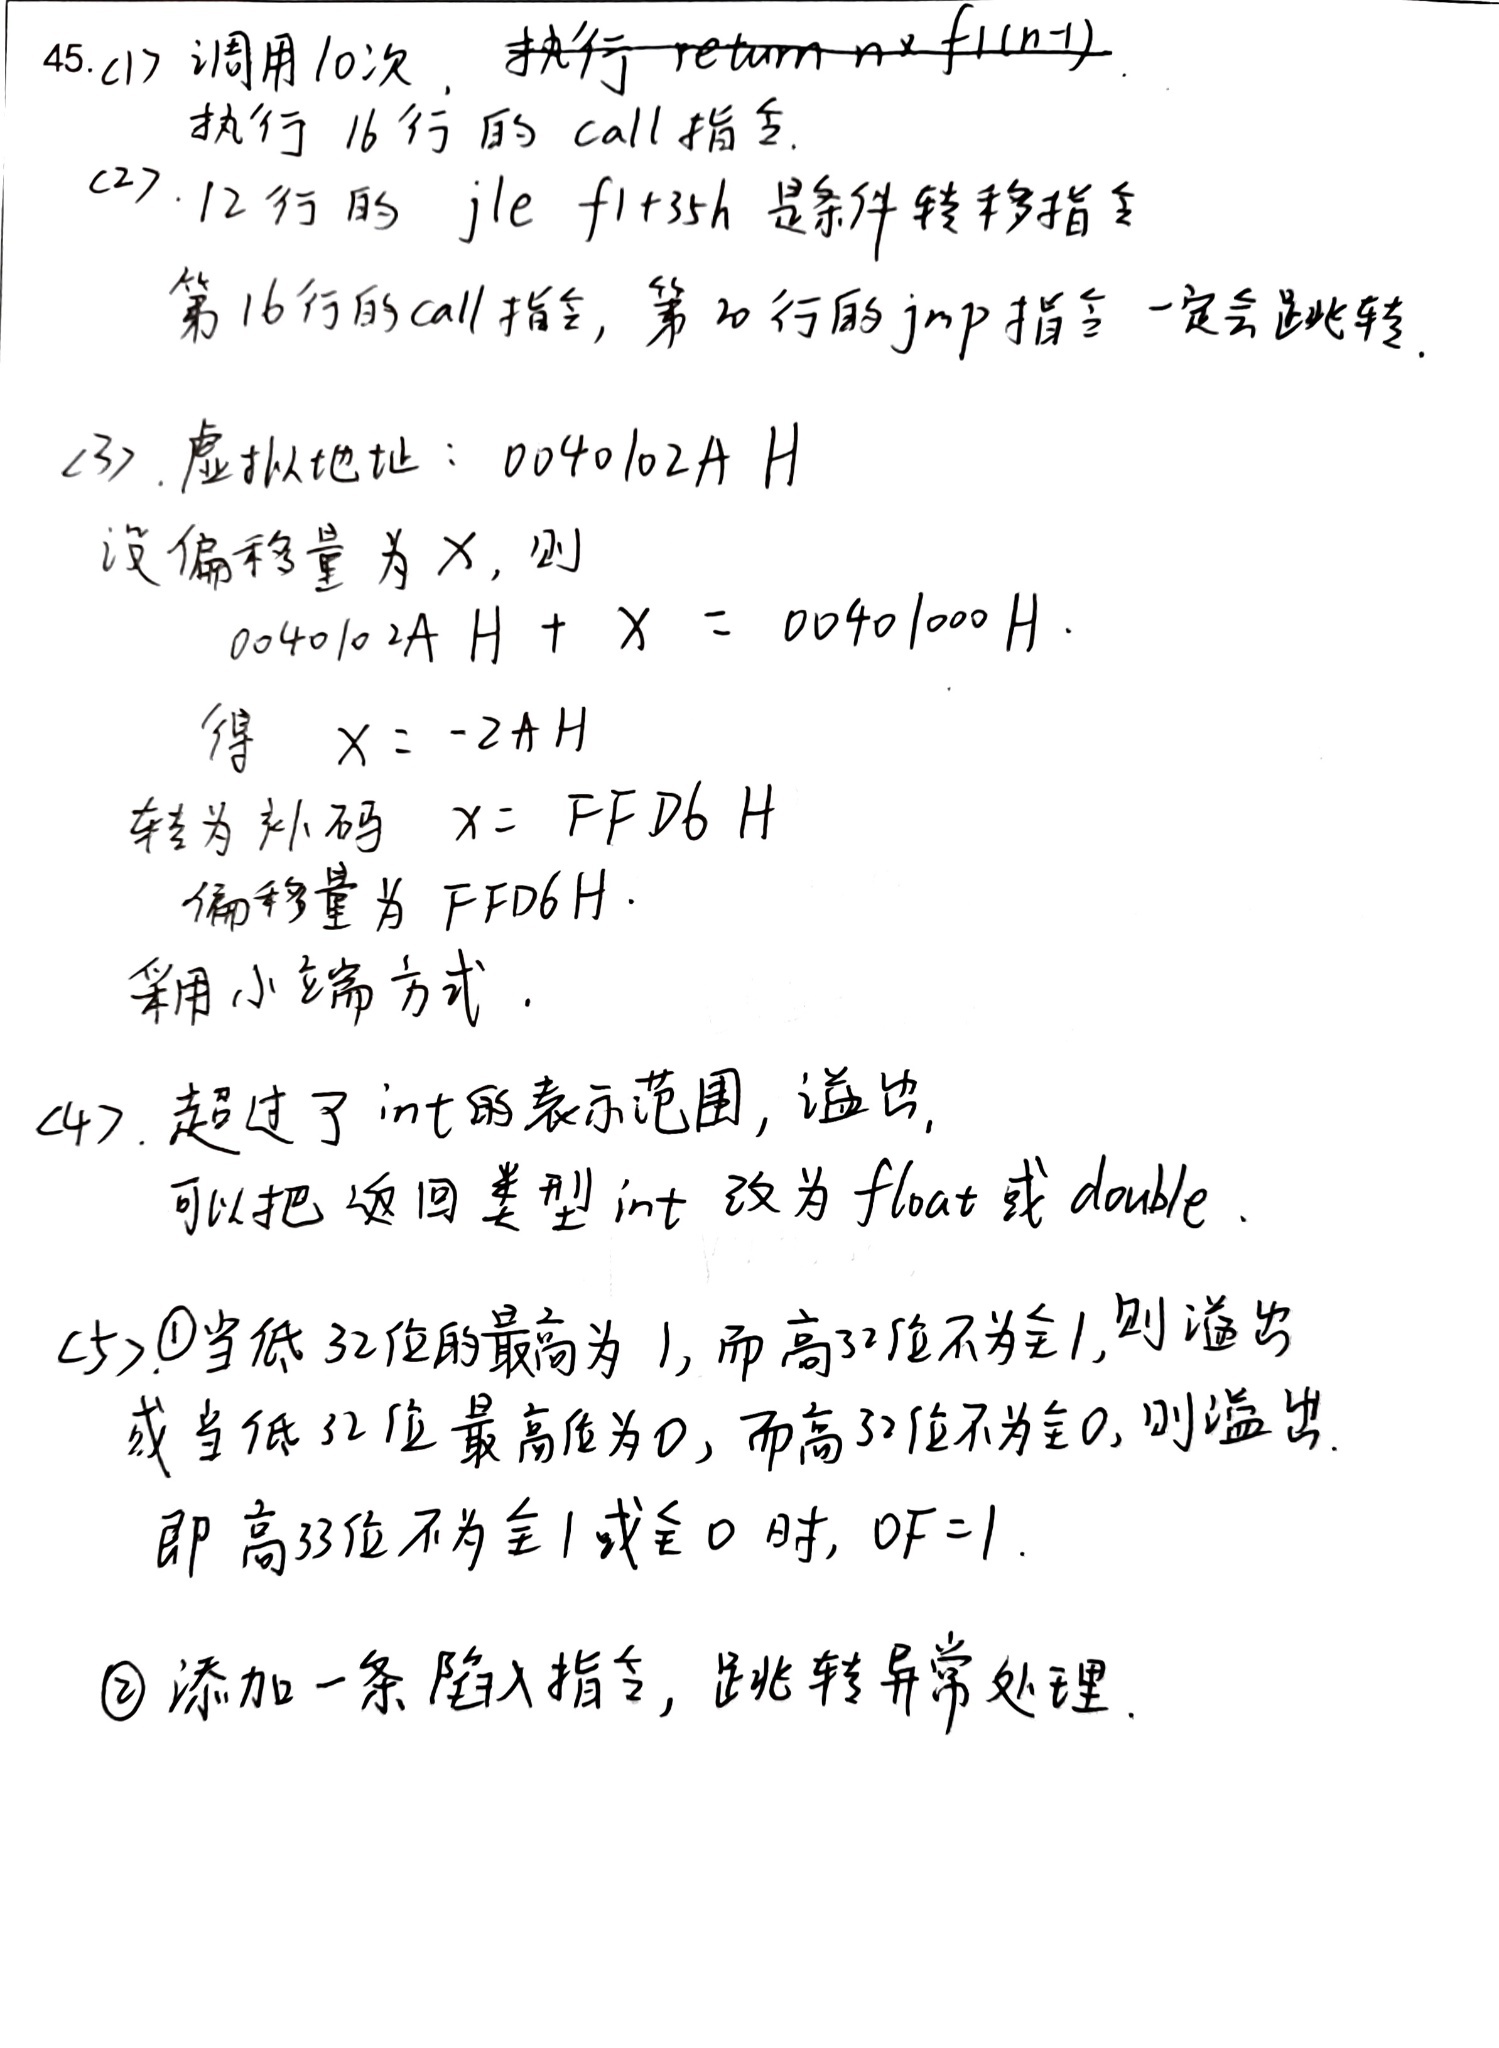 45.(1) 调用10次, 执行 return n×f1(n-1).
执行 16行的 call指令.
(2). 12行的 jle f1+35h 是条件转移指令
第16行的call指令, 第20行的jmp指令一定会跳转.
(3). 虚拟地址: 0040102A H
设偏移量为X, 则
0040102A H + X = 00401000H.
得 X = -2AH
转为补码 X = FFD6 H
偏移量为 FFD6H.
采用小端方式.
(4). 超过了int的表示范围, 溢出,
可以把返回类型int改为float或double.
(5).①当低32位的最高为1, 而高32位不为全1, 则溢出
或当低32位最高位为0, 而高32位不为全0, 则溢出.
即高33位不为全1或全0时, OF=1.
②添加一条陷入指令, 跳转异常处理.